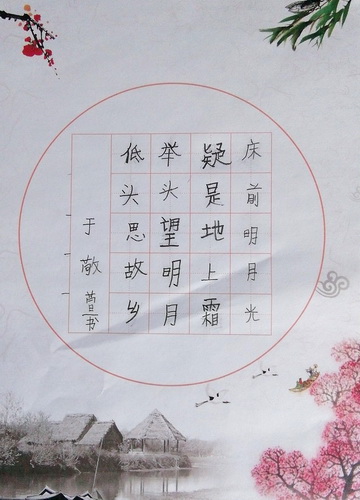 床前明月光
疑是地上霜
举头望明月
低头思故乡
于敬
书